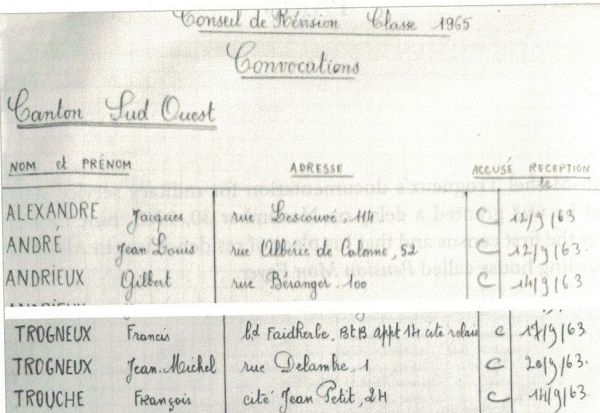 Conseil de Révision Classe 1965
Convocations
Canton Sud Ouest
NOM et PRÉNOM ADRESSE ACCUSÉ RECEPTION
le
ALEXANDRE Jacques rue Lescouvé, 114 C 12/9/63
ANDRÉ Jean Louis rue Albéric de Calonne, 52 C 12/9/63.
ANDRIEUX Gilbert rue Béranger, 100 C 14/9/63
TROGNEUX Francis bd Faidherbe, Bt B appt 14 cité relais c 17/9/63
TROGNEUX Jean.Michel rue Delambre, 1 C 20/9/63.
TROUCHE François cité Jean Petit, 24 C 14/9/63.